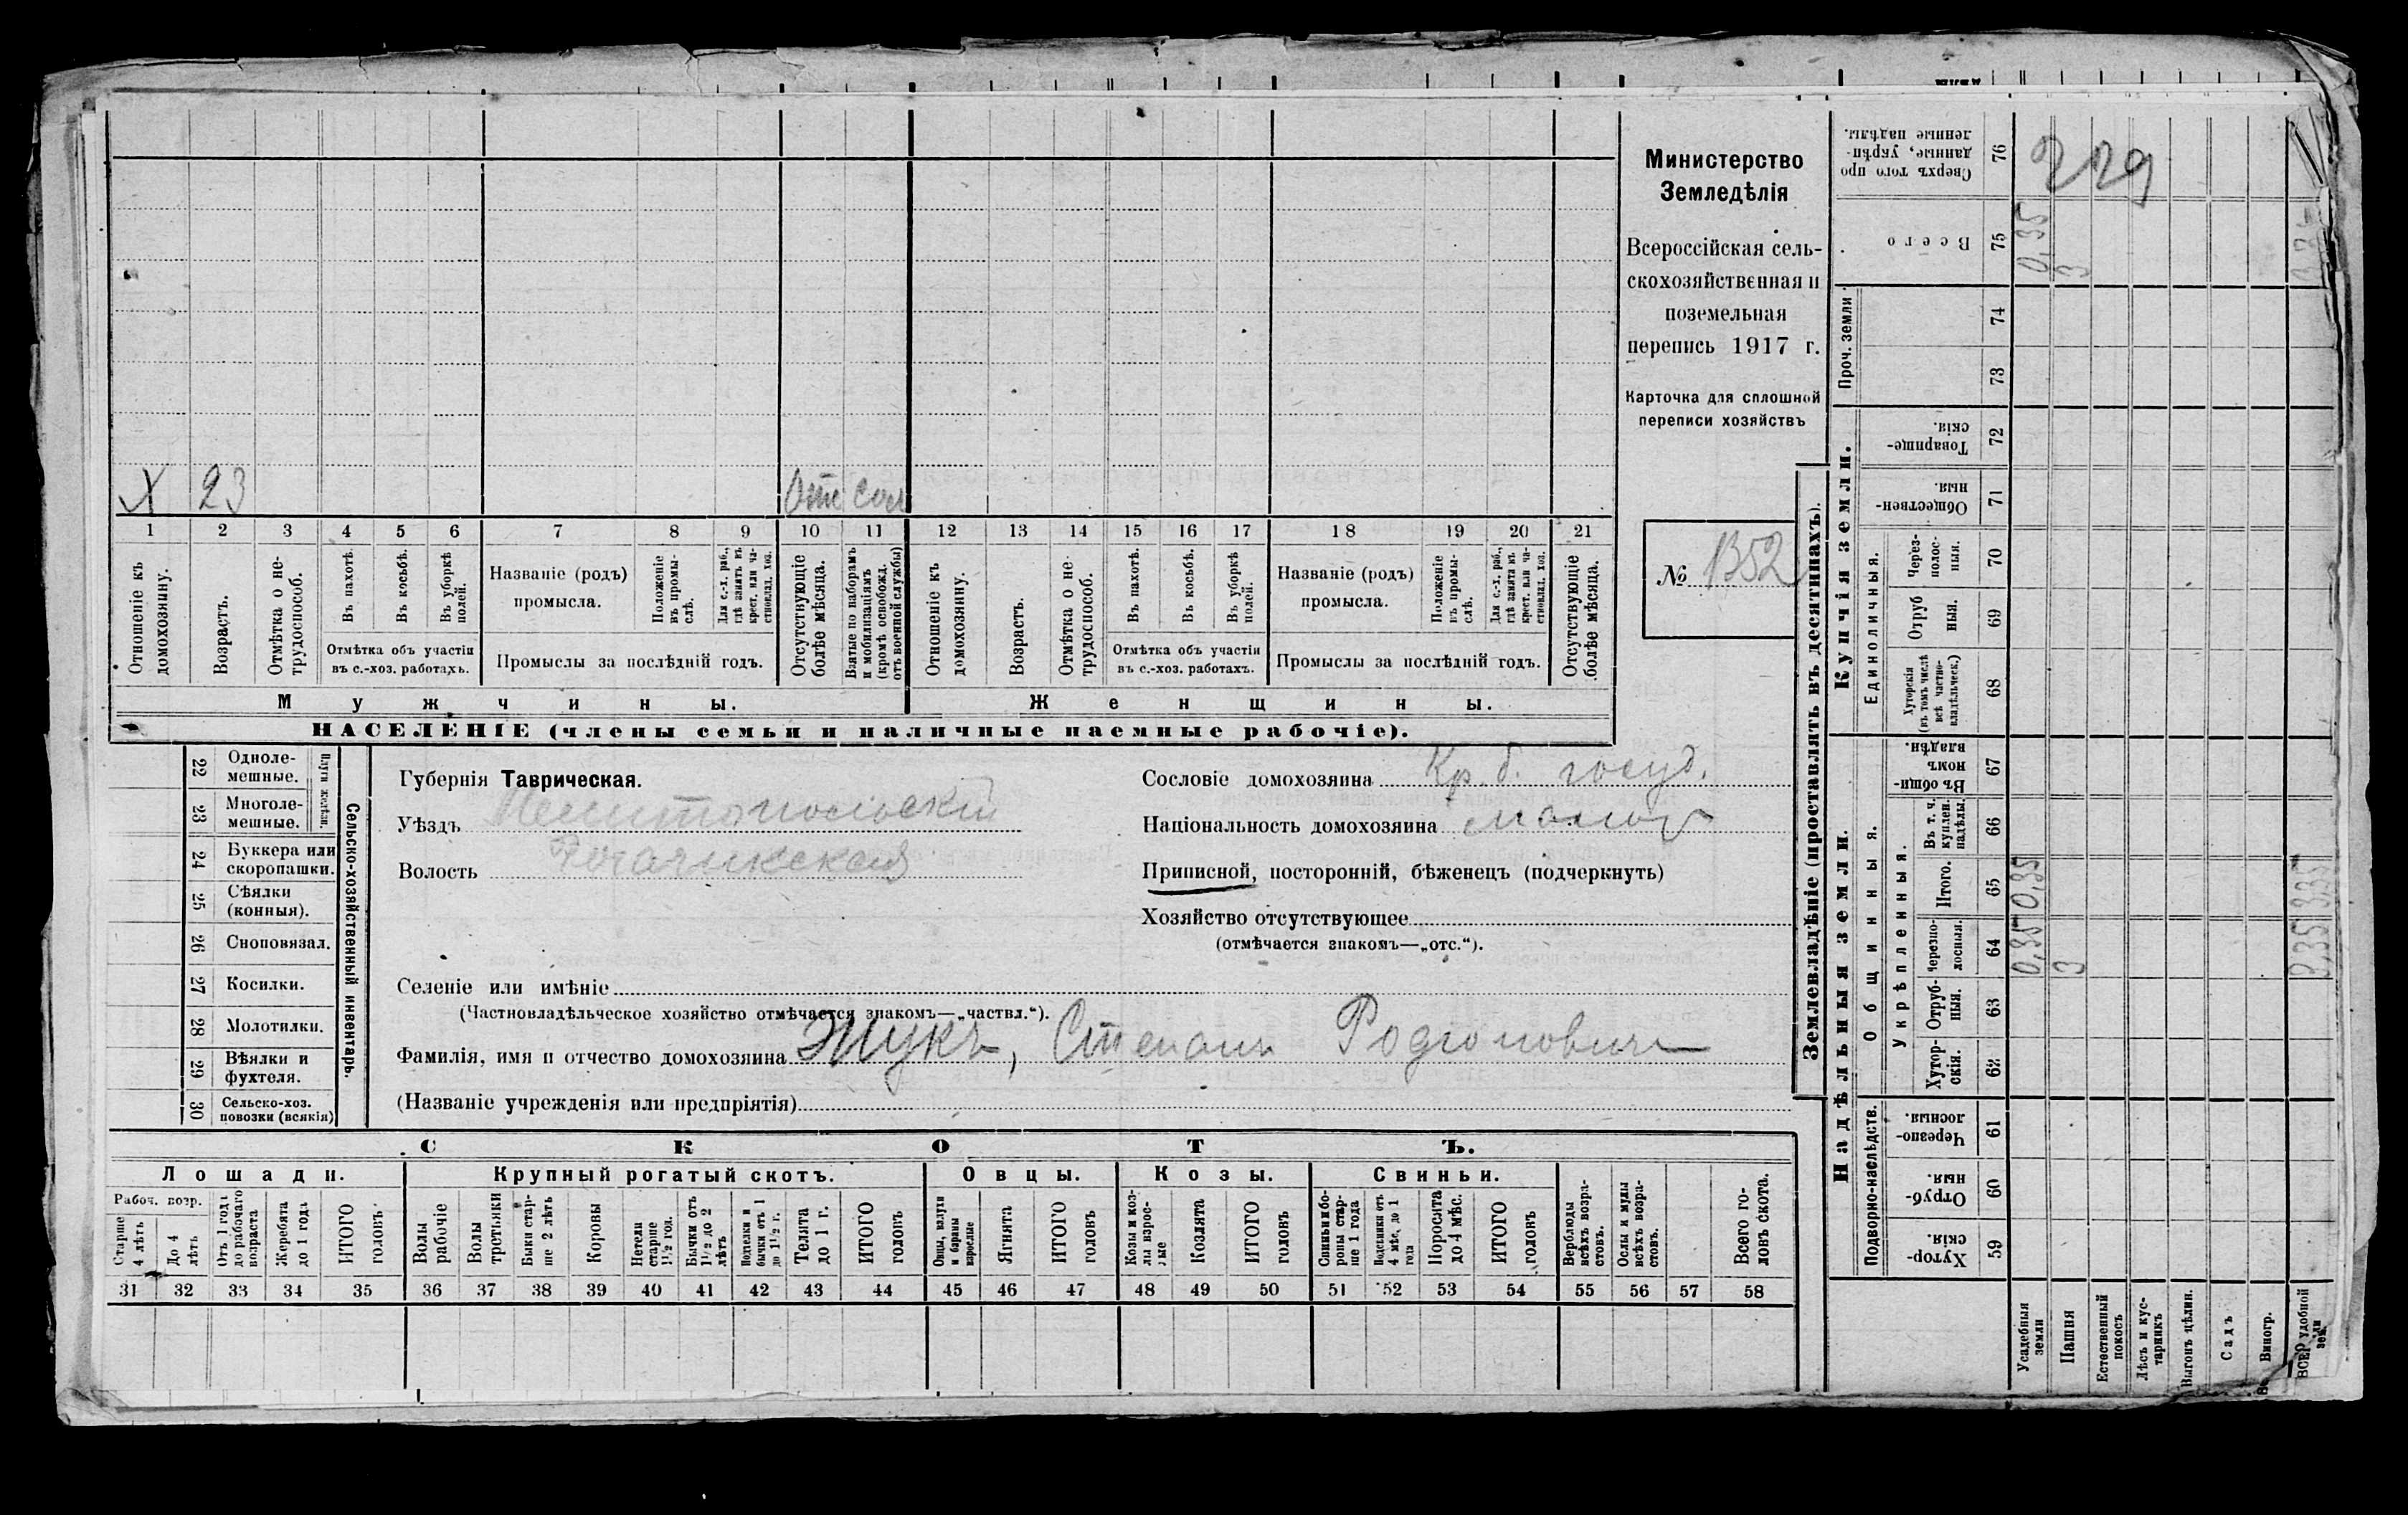 Министерство
Земледѣлія
Всероссійская сель-
скохозяйственная и
поземельная
перепись 1917 г.
Карточка для сплошной
переписи хозяйствъ
№ 1352
X 23 Отс сол
1 2 3 4 5 6 7 8 9 10 11 12 13 14 15 16 17 18 19 20 21
Отношеніе къ домохозяину.
Возрастъ.
Отмѣтка о не-
трудоспособ.
Въ пахотѣ.
Въ косьбѣ.
Въ уборкѣ
полей.
Отмѣтка объ участіи
въ с.-хоз. работахъ.
Названіе (родъ)
промысла.
Положеніе
въ промы-
слѣ.
Для с.-х. раб.,
гдѣ занятъ въ
крест. или ча-
стновлад. хоз.
Промыслы за послѣдній годъ.
Отсутствующіе
болѣе мѣсяца.
Взятые по наборамъ
и мобилизаціямъ
(кромѣ освобожд.
отъ военной службы)
Отношеніе къ
домохозяину.
Возрастъ.
Отмѣтка о не
трудоспособ.
Въ пахотѣ.
Въ косьбѣ.
Въ уборкѣ
полей.
Отмѣтка объ участіи
въ с.-хоз. работахъ.
Названіе (родъ)
промысла.
Положеніе
въ промы-
слѣ.
Для с.-х. раб.,
гдѣ занята въ
крест. или ча-
стновлад. хоз.
Промыслы за послѣдній годъ.
Отсутствующіе
болѣе мѣсяца.
Мужчины.
Женщины.
НАСЕЛЕНІЕ (члены семьи и наличные наемные рабочіе).
22 Однолe-
мешные.
23 Многоле-
мешные.
Плуги желѣзн.
24 Буккера или
скоропашки.
25 Сѣялки
(конныя).
26 Сноповязал.
27 Косилки.
28 Молотилки.
29 Вѣялки и
фухтеля.
30 Сельско-хоз.
повозки (всякія)
Сельско-хозяйственный инвентарь.
Губернія Таврическая.
Уѣздъ Мелитопольскій
Волость Рогачикская
Сословіе домохозяина Кр. б. госуд.
Національность домохозяина малор
Приписной, посторонній, бѣженецъ (подчеркнуть)
Хозяйство отсутствующее
(отмѣчается знакомъ—„отс.“).
Селеніе или имѣніе
(Частновладѣльческое хозяйство отмѣчается знакомъ—„частвл.“).
Фамилія, имя и отчество домохозяина Жукъ, Степанъ Родионович
(Названіе учрежденія или предпріятія)
СКОТЪ.
Лошади.
Крупный рогатый скотъ.
Овцы.
Козы.
Свиньи.
Рабоч. возр.
Старше
4 лѣтъ
До 4
лѣтъ
Отъ 1 года
до рабочаго
возраста
Жеребята
до 1 года
ИТОГО
головъ
Волы
рабочіе
Волы
третьяки
Быки стар-
ше 2 лѣтъ
Коровы
Нетели
старше
1½ год.
Бычки отъ
1½ до 2
лѣтъ
Подтелки и
бычки отъ 1
до 1½ г.
Телята
до 1 г.
ИТОГО
головъ
Овцы, валухи
и бараны
взрослые
Ягнята
ИТОГО
головъ
Козы и коз-
лы взрос-
лые
Козлята
ИТОГО
головъ
Свиньи и бо-
ровы стар-
ше 1 года
Подсвинки отъ
4 мѣс. до 1
года
Поросята
до 4 мѣс.
ИТОГО
головъ
Верблюды
всѣхъ возра-
стовъ.
Ослы и мулы
всѣхъ возра-
стовъ.
Всего го-
ловъ скота.
31 32 33 34 35 36 37 38 39 40 41 42 43 44 45 46 47 48 49 50 51 52 53 54 55 56 57 58
Землевладѣніе (проставлять въ десятинахъ).
Купчія земли.
Надѣльныя земли.
Проч. земли
Единоличныя.
Общинныя.
Укрѣпленныя.
Подворно-наслѣдств.
Сверхъ того про
данные, укрѣп-
ленные надѣлы.
76
229
Всего
75
0,35
3
74
73
Товарище-
скія.
72
Обществен-
ныя.
71
Через-
полос-
ныя.
70
Отруб
ныя.
69
Хуторскія
(въ томъ числѣ
всѣ частно-
владѣльческ.)
68
Въ общин-
номъ
владѣн.
67
Въ т. ч.
куплен.
надѣлы.
66
Итого.
65
0,35
3,35
Черезпо-
лосныя.
64
0,35
3
3,35
Отруб-
ныя.
63
Хутор-
скія.
62
Черезпо-
лосныя.
61
Отруб-
ныя.
60
Хутор-
скія.
59
Усадебныя
земли
Пашня
Естественный
покосъ
Лѣсъ и кус-
тарникъ
Выгонъ цѣлин.
Садъ
Виногр.
удобной